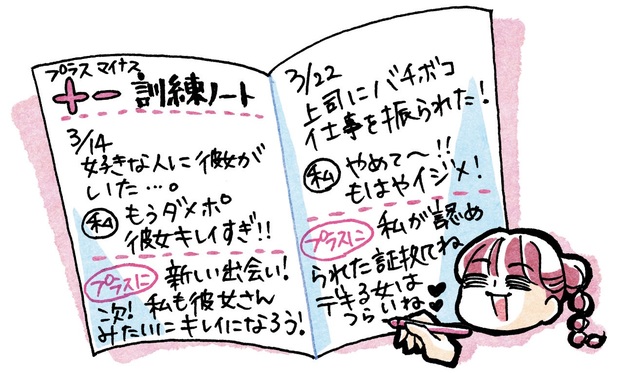 プラス マイナス
+- 訓練ノート
3/14
好きな人に彼女が
いた…。
私 もうダメポ
彼女キレイすぎ!!
プラスに 新しい出会い!
次! 私も彼女さん
みたいにキレイになろう!
3/22
上司にバチボコ
仕事を振られた!
私 やめて〜!!
もはやイジメ!
プラスに 私が認め
られた証拠てね
デキる女は
つらいね